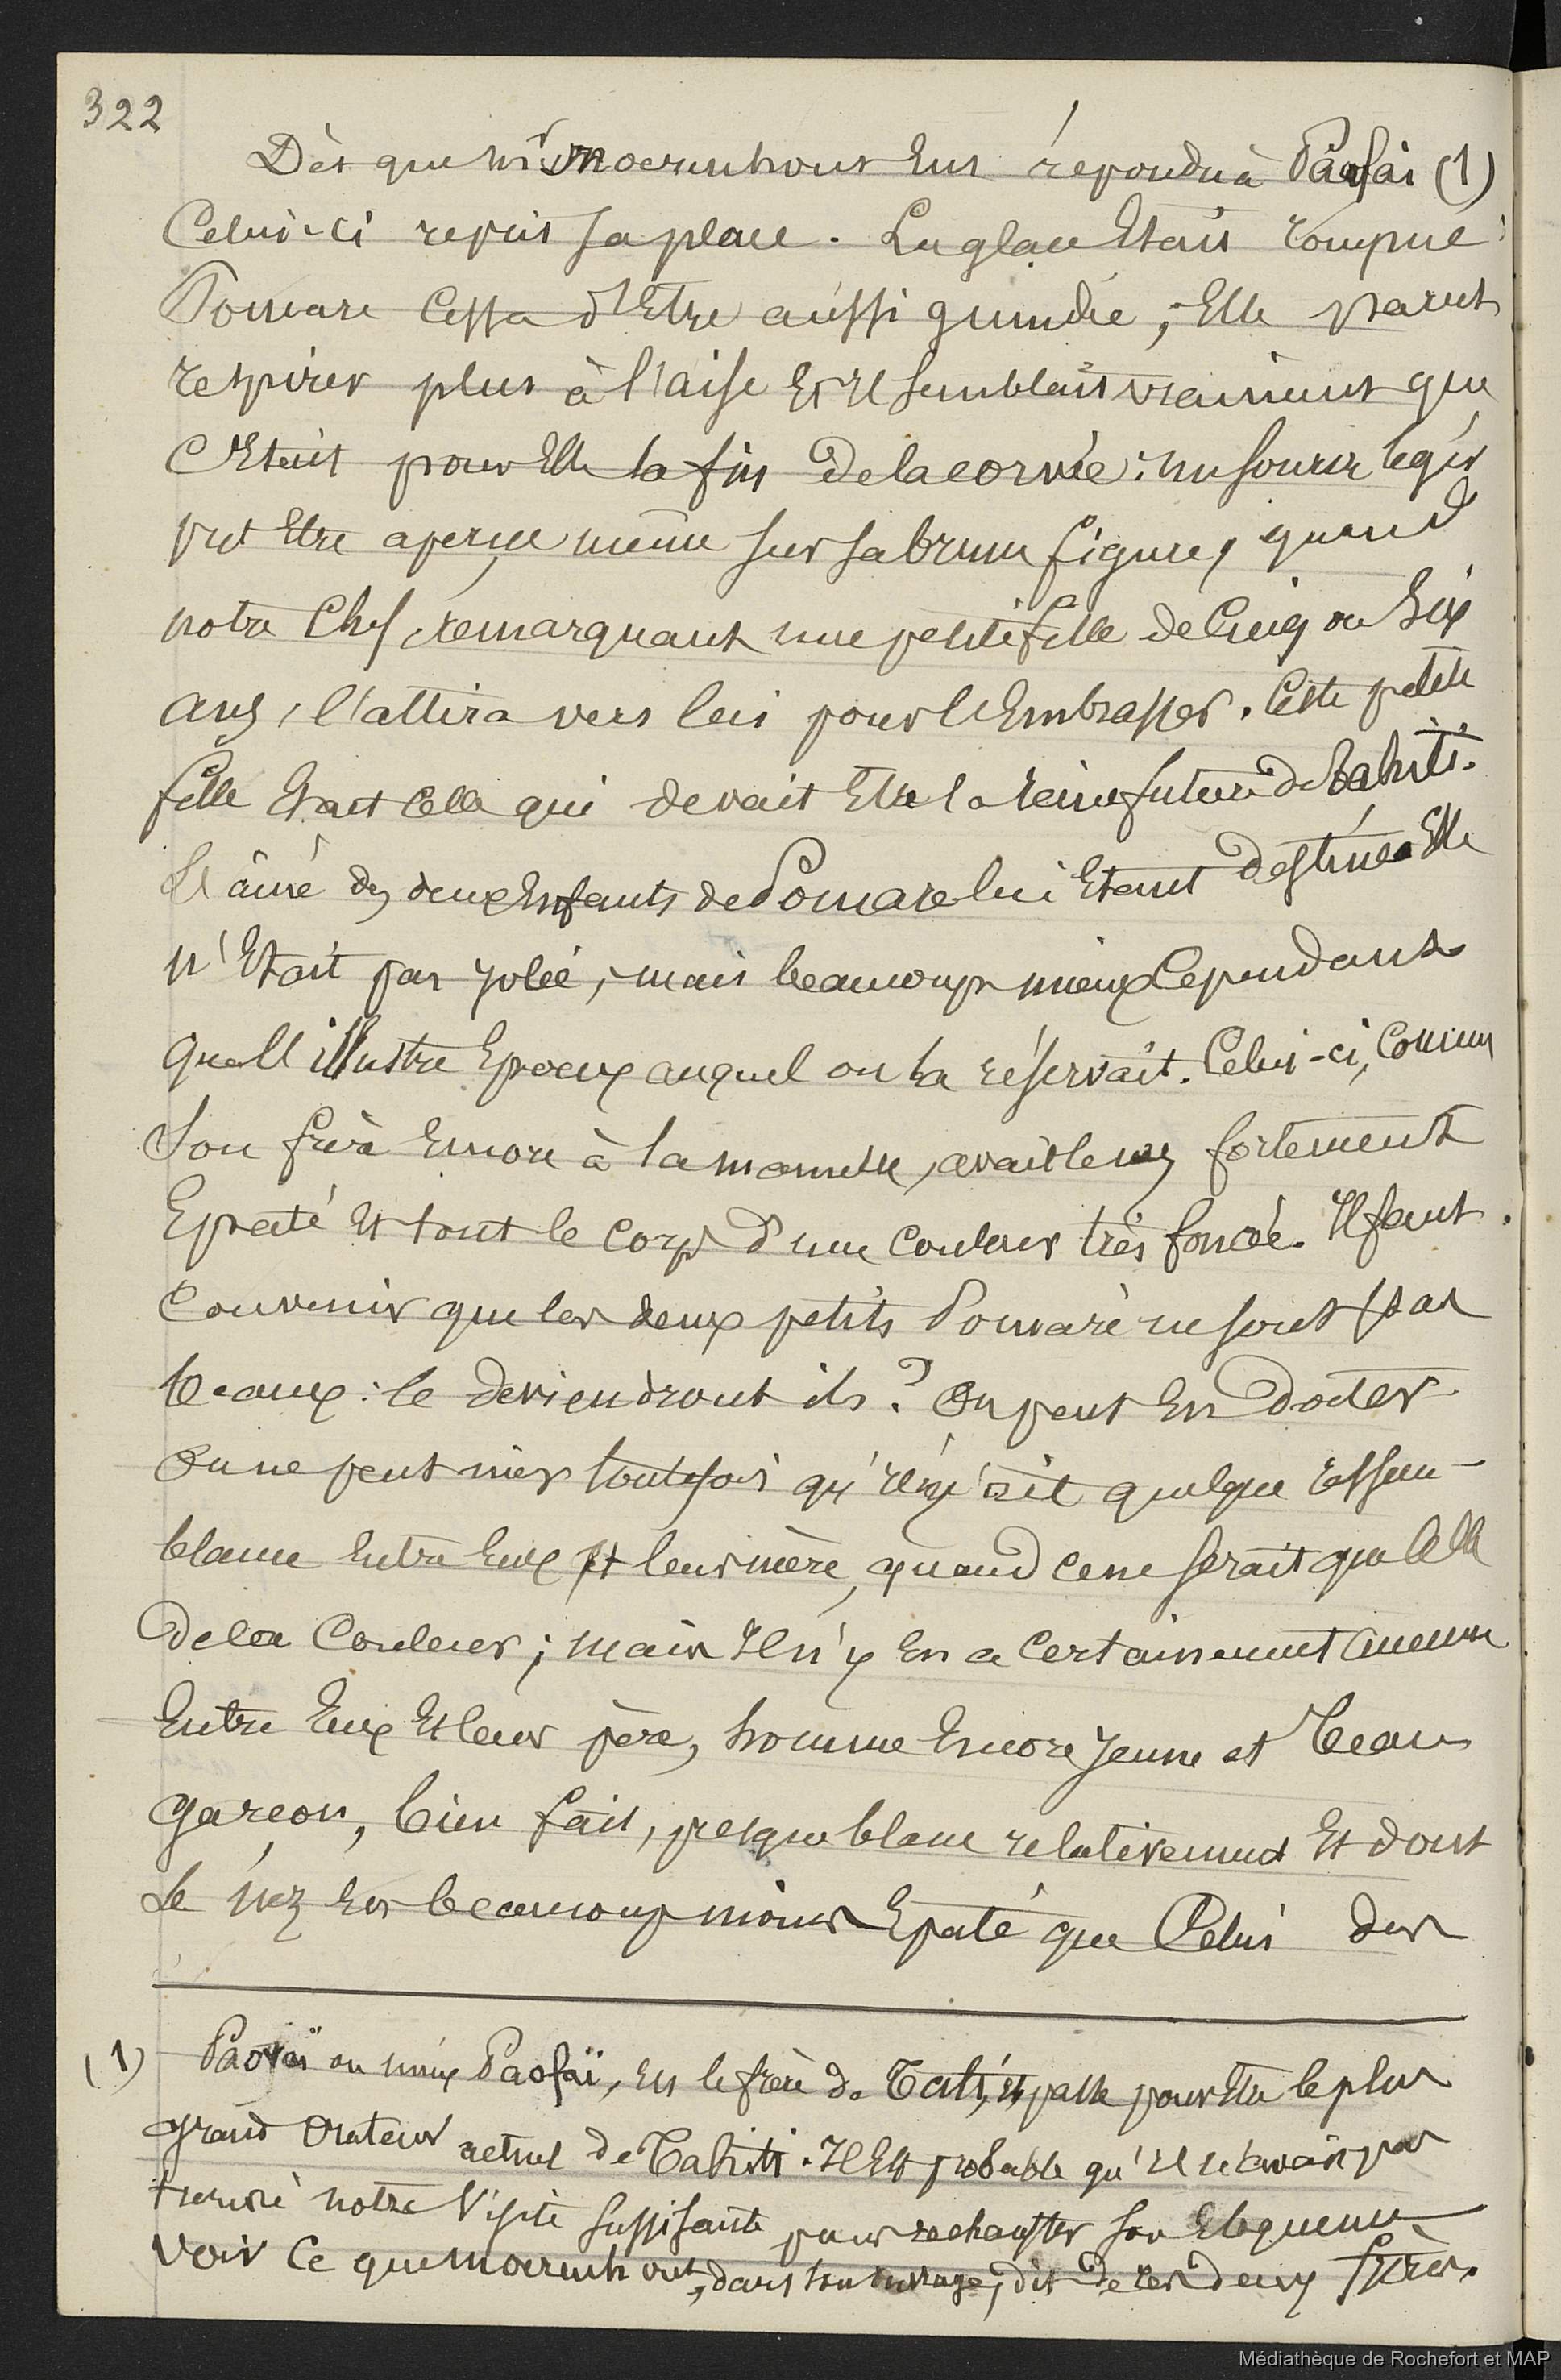 322
Dès que Mr Moerenhout eut répondu à Paofai (1)
Celui-ci reprit sa place. La glace Etait rompue:
Pomare Cessa d'Etre aussi guindée; Elle parut
respirer plus à l'aise Et Il semblait vraiment que
C'Etait pour Elle la fin de la corvée: un sourir léger
put Etre aperçu même sur sa brune figure, quand
notre Chef, remarquant une petite fille de Cinq ou Six
ans, l'attira vers lui pour l'Embrasser. Cette petite
fille Etait Celle qui devait Etre la reine future de Tahiti.
L'ainé des deux Enfants de Pomare lui Etant destiné. Elle
n'Etait pas jolie, mais beaucoup mieux Cependant
que l'illustre Epoux auquel on la réservait. Celui-ci, Comme
Son frère Encore à la mamelle, avait le nez fortement
Epaté Et tout le Corps d'une Couleur très foncée. Il faut
Convenir que les deux petits Pomare ne sont pas
beaux: le deviendront ils? On peut En douter
On ne peut nier toutefois qu'il n'y ait quelque ressem-
blance Entre Eux Et leur mère, quand ce ne serait que Celle
de la Couleur; mais Il n'y En a Certainement aucune
Entre Eux Et leur père, homme Encore jeune et beau
garçon, bien fait, presque blanc relativement Et dont
Le nez Est beaucoup moins Epaté que Celui des
(1) Paofaï ou mieux Paofaï, Est le frère de Tati, Et passe pour Etre le plus
grand Orateur actuel de Tahiti. Il Est probable qu'Il n'avait pas
trouvé notre Visite suffisante pour rechauffer son Eloquence
Voir Ce que Moerenhout, dans son ouvrage, dit de ces deux frères.
Médiathèque de Rochefort et MAP